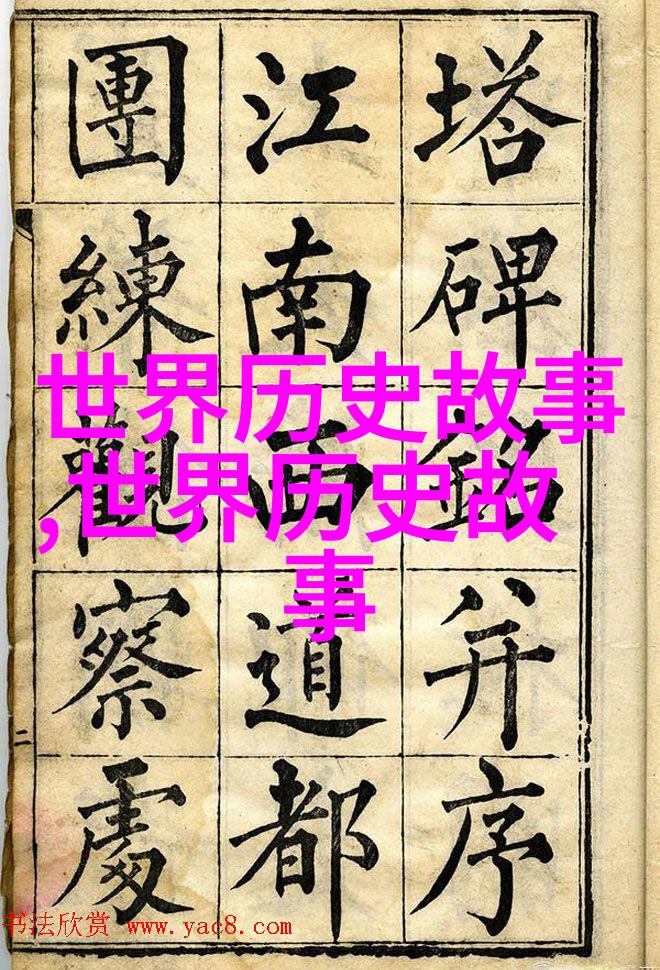 塔碑銘并序
江南西道都
團練觀察處
二
世界历史故事
,世界历史故
事
书法欣赏 www.yac8.com